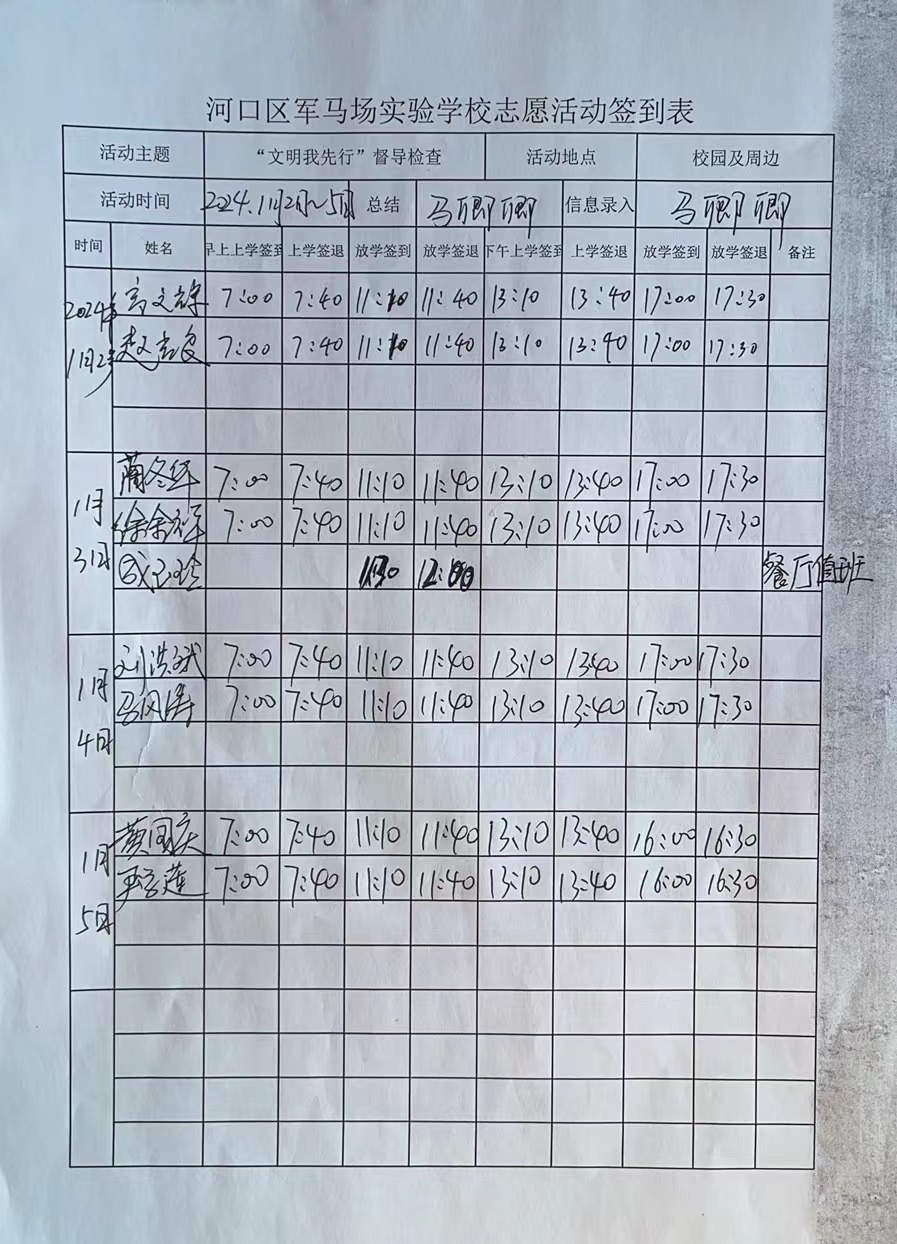 河口区军马场实验学校志愿活动签到表
活动主题 “文明我先行”督导检查 活动地点 校园及周边
活动时间 2024.1月2日~5日 总结 马卿卿 信息录入 马卿卿
时间 姓名 早上上学签到 上学签退 放学签到 放学签退 下午上学签到 上学签退 放学签到 放学签退 备注
2024年 7:00 7:40 11:10 11:40 13:10 13:40 17:00 17:30
1月2日 7:00 7:40 11:10 11:40 13:10 13:40 17:00 17:30
1月 7:00 7:40 11:10 11:40 13:10 13:40 17:00 17:30
7:00 7:40 11:10 11:40 13:10 13:40 17:00 17:30
3日 12:00 餐厅值班
1月 刘洪斌 7:00 7:40 11:10 11:40 13:10 13:40 17:00 17:30
马风涛 7:00 7:40 11:10 11:40 13:10 13:40 17:00 17:30
4日
1月 黄国庆 7:00 7:40 11:10 11:40 13:10 13:40 16:00 16:30
7:00 7:40 11:10 11:40 13:10 13:40 16:00 16:30
5日